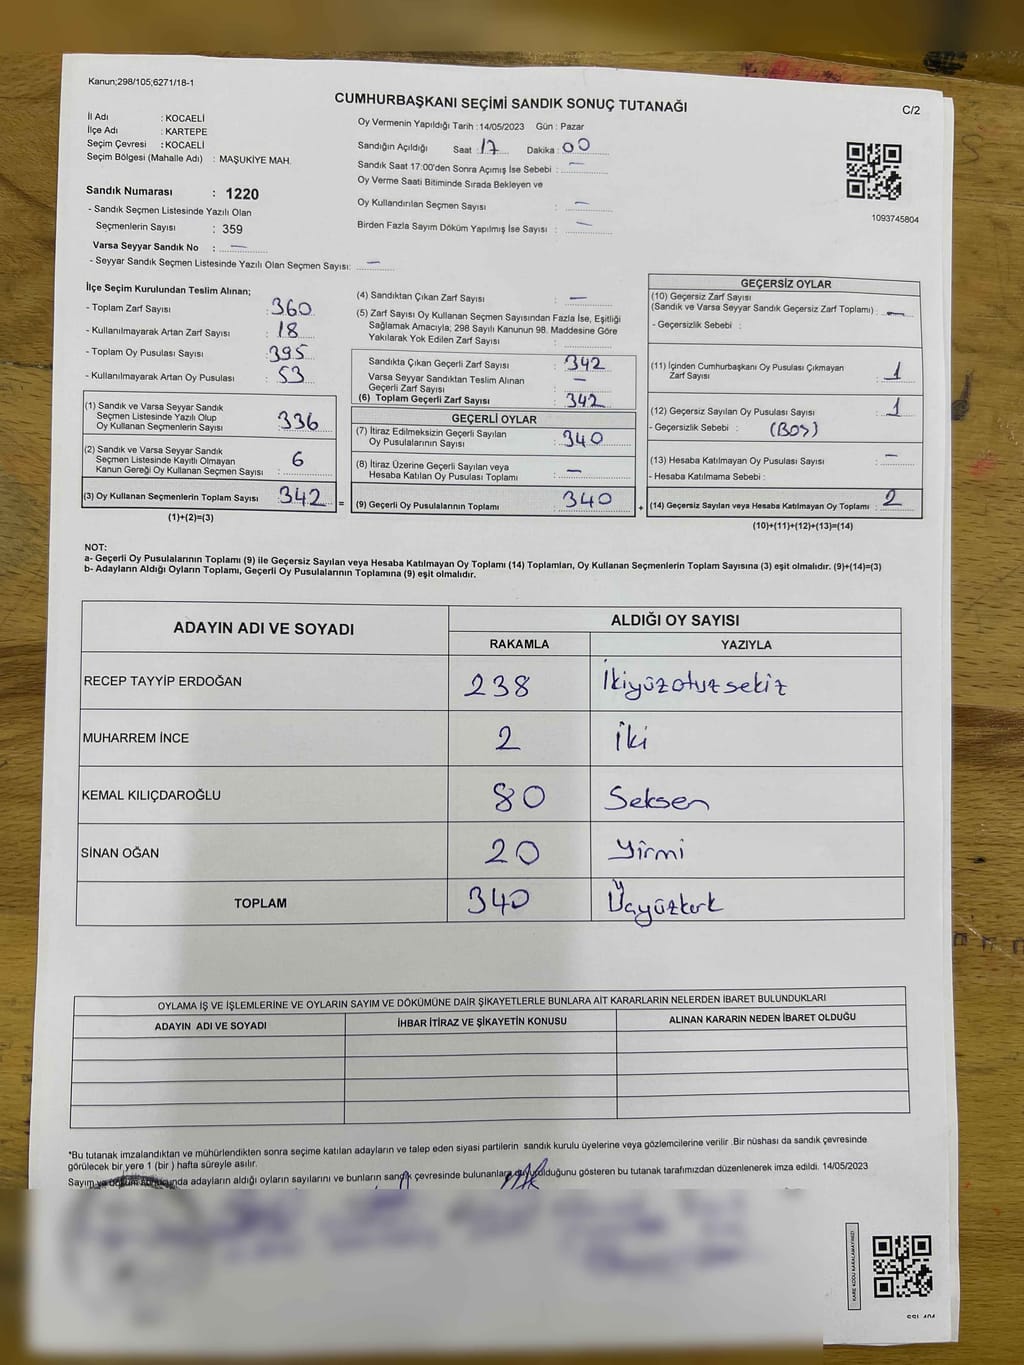 Kanun;298/105;6271/18-1
CUMHURBAŞKANI SEÇİMİ SANDIK SONUÇ TUTANAĞI
C/2
İl Adı : KOCAELİ
İlçe Adı : KARTEPE
Seçim Çevresi : KOCAELİ
Seçim Bölgesi (Mahalle Adı) : MAŞUKİYE MAH.
Sandık Numarası : 1220
- Sandık Seçmen Listesinde Yazılı Olan
Seçmenlerin Sayısı : 359
Varsa Seyyar Sandık No : —
- Seyyar Sandık Seçmen Listesinde Yazılı Olan Seçmen Sayısı: —
Oy Vermenin Yapıldığı Tarih : 14/05/2023 Gün : Pazar
Sandığın Açıldığı Saat : 17 Dakika : 00
Sandık Saat 17:00'den Sonra Açımış İse Sebebi : —
Oy Verme Saati Bitiminde Sırada Bekleyen ve
Oy Kullandırılan Seçmen Sayısı : —
Birden Fazla Sayım Döküm Yapılmış İse Sayısı : —
1093745804
İlçe Seçim Kurulundan Teslim Alınan;
- Toplam Zarf Sayısı : 360
- Kullanılmayarak Artan Zarf Sayısı : 18
- Toplam Oy Pusulası Sayısı : 395
- Kullanılmayarak Artan Oy Pusulası : 53
(1) Sandık ve Varsa Seyyar Sandık
Seçmen Listesinde Yazılı Olup
Oy Kullanan Seçmenlerin Sayısı : 336
(2) Sandık ve Varsa Seyyar Sandık
Seçmen Listesinde Kayıtlı Olmayan
Kanun Gereği Oy Kullanan Seçmen Sayısı : 6
(3) Oy Kullanan Seçmenlerin Toplam Sayısı : 342 =
(1)+(2)=(3)
(4) Sandıktan Çıkan Zarf Sayısı : —
(5) Zarf Sayısı Oy Kullanan Seçmen Sayısından Fazla İse, Eşitliği
Sağlamak Amacıyla; 298 Sayılı Kanunun 98. Maddesine Göre
Yakılarak Yok Edilen Zarf Sayısı :
Sandıkta Çıkan Geçerli Zarf Sayısı : 342
Varsa Seyyar Sandıktan Teslim Alınan
Geçerli Zarf Sayısı : —
(6) Toplam Geçerli Zarf Sayısı : 342
GEÇERLİ OYLAR
(7) İtiraz Edilmeksizin Geçerli Sayılan
Oy Pusulalarının Sayısı : 340
(8) İtiraz Üzerine Geçerli Sayılan veya
Hesaba Katılan Oy Pusulası Toplamı : —
(9) Geçerli Oy Pusulalarının Toplamı : 340 +
GEÇERSİZ OYLAR
(10) Geçersiz Zarf Sayısı
(Sandık ve Varsa Seyyar Sandık Geçersiz Zarf Toplamı) : —
- Geçersizlik Sebebi :
(11) İçinden Cumhurbaşkanı Oy Pusulası Çıkmayan
Zarf Sayısı : 1
(12) Geçersiz Sayılan Oy Pusulası Sayısı : 1
- Geçersizlik Sebebi : (BOŞ)
(13) Hesaba Katılmayan Oy Pusulası Sayısı : —
- Hesaba Katılmama Sebebi :
(14) Geçersiz Sayılan veya Hesaba Katılmayan Oy Toplamı : 2
(10)+(11)+(12)+(13)=(14)
NOT:
a- Geçerli Oy Pusulalarının Toplamı (9) ile Geçersiz Sayılan veya Hesaba Katılmayan Oy Toplamı (14) Toplamları, Oy Kullanan Seçmenlerin Toplam Sayısına (3) eşit olmalıdır. (9)+(14)=(3)
b- Adayların Aldığı Oyların Toplamı, Geçerli Oy Pusulalarının Toplamına (9) eşit olmalıdır.
ADAYIN ADI VE SOYADI
ALDIĞI OY SAYISI
RAKAMLA YAZIYLA
RECEP TAYYİP ERDOĞAN 238 İkiyüzotuzsekiz
MUHARREM İNCE 2 İki
KEMAL KILIÇDAROĞLU 80 Seksen
SİNAN OĞAN 20 Yirmi
TOPLAM 340 Üçyüzkırk
OYLAMA İŞ VE İŞLEMLERİNE VE OYLARIN SAYIM VE DÖKÜMÜNE DAİR ŞİKAYETLERLE BUNLARA AİT KARARLARIN NELERDEN İBARET BULUNDUKLARI
ADAYIN ADI VE SOYADI İHBAR İTİRAZ VE ŞİKAYETİN KONUSU ALINAN KARARIN NEDEN İBARET OLDUĞU
*Bu tutanak imzalandıktan ve mühürlendikten sonra seçime katılan adayların ve talep eden siyasi partilerin sandık kurulu üyelerine veya gözlemcilerine verilir .Bir nüshası da sandık çevresinde
görülecek bir yere 1 (bir ) hafta süreyle asılır.
Sayım ve döküm sonucunda adayların aldığı oyların sayılarını ve bunların sandık çevresinde bulunanlara duyurulduğunu gösteren bu tutanak tarafımızdan düzenlenerek imza edildi. 14/05/2023
KARE KODU KARALAMAYINIZ!